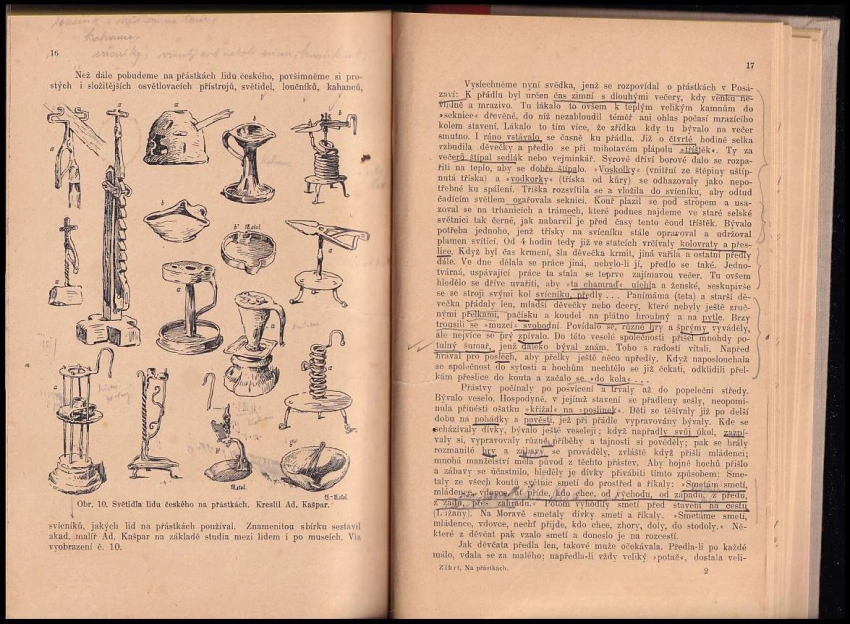 16
Než dále pobudeme na přástkách lidu českého, povšimněme si pro-
stých i složitějších osvětlovacích přístrojů, světidel, loučníků, kahanců,
Obr. 10. Světidla lidu českého na přástkách. Kreslil Ad. Kašpar.
svícníků, jakých lid na přástkách používal. Znamenitou sbírku sestavil
akad. malíř Ad. Kašpar na základě studia mezi lidem i po museích. Viz
vyobrazení č. 10.
17
Vyslechněme nyní svědka, jenž se rozpovídal o přástkách v Posá-
zaví: K přádlu byl určen čas zimní s dlouhými večery, kdy venku ne-
vlídně a mrazivo. Tu lákalo to ovšem k teplým velikým kamnům do
»seknice« dřevěné, do níž nezabloudil téměř ani ohlas počasí mrazivého
kolem stavení. Lákalo to tím více, že zřídka kdy tu bývalo na večer
smutno. I ráno vstávalo se časně ku přádlu. Již o čtvrté hodině selka
vzbudila děvečky a předlo se při mihotavém plápolu »tříštěk«. Ty za
večerů štípal sedlák nebo vejminkář. Syrové dříví borové dalo se rozpa-
řiti na teplo, aby se dobře štípalo. »Voskolky« (vnitřní ze štěpiny uštíp-
nutá tříska) a »vodkorky« (tříska od kůry) se odhazovaly jako nepo-
třebné ku spálení. Tříska rozsvítila se a vložila do svícníku, aby odtud
čadícím světlem ozařovala seknici. Kouř plazil se pod stropem a usa-
zoval se na trhanicích a trámech, které podnes najdeme ve staré selské
světnici tak černé, jak nabarvil je před časy tento čoud tříštěk. Bývalo
potřeba jednoho, jenž třísky na svícníku stále opravoval a udržoval
plamen svítící. Od 4 hodin tedy již ve statcích vrčívaly kolovraty a přes-
lice. Když byl čas krmení, šla děvečka krmit, jiná vařila a ostatní předly
dále. Ve dne dělala se práce jiná, nebylo-li jí, předlo se také. Jedno-
tvárná, uspávající práce ta stala se teprve zajímavou večer. Tu ovšem
hledělo se dříve uvařiti, aby »ta chamraď« ulehla a ženské, seskupivše
se se stroji svými kol svícníku, předly... Panímáma (teta) a starší dě-
večka přádaly len, mladší děvečky nebo dcery, které nebyly ještě zruč-
nými přelkami, pačísku a koudel na plátno hroubný a na pytle. Brzy
trousili se »muzei« svobodní. Povídalo se, různé hry a šprýmy vyváděly,
ale nejvíce se prý zpívalo. Do této veselé společnosti přišel mnohdy po-
tulný šumař, jenž daleko býval znám. Toho s radostí vítali. Napřed
hrával pro poslech, aby přelky ještě něco upředly. Když naposlouchala
se společnost do sytosti a hochům nechtělo se již čekati, odklidili přel-
kám přeslice do kouta a začalo se »do kola«...
Přástvy počínaly po posvícení a trvaly až do popeleční středy.
Bývalo veselo. Hospodyně, v jejímž stavení se přadleny sešly, neopomi-
nula přinésti ošatku »křížal« na »poslinek«. Děti se těšívaly již po delší
dobu na pohádky a pověsti, jež při přádle vypravovány bývaly. Kde se
scházívaly dívky, bývalo ještě veseleji; když napřadly svůj úkol, zazpí-
valy si, vypravovaly různé příběhy a tajnosti si pověděly; pak se hrály
rozmanité hry a zábavy se prováděly, zvláště když přišli mládenci;
mnohá manželství měla původ z těchto přástev. Aby hojně hochů přišlo
a zábavy se účastnilo, hleděly je dívky přivábiti tímto způsobem: Sme-
taly ze všech koutů světnic smetí do prostřed a říkaly: »Smetám smetí,
mládence, vdovce, ať přijde, kdo chce, od východu, od západu, z předu,
z zadu, přes zahradu.« Potom vyhodily smetí před stavení na cestu
(Ližany). Na Moravě smetaly dívky smetí a říkaly: »Smetáme smetí,
mládence, vdovce, nechť přijdp, kdo chce, zhory, doly, do stodoly.« Ně-
které z děvčat pak vzalo smetí a doneslo je na rozcestí.
Jak děvčata předla len, takové muže očekávala. Předla-li po každé
málo, vdala se za malého; napředla-li vždy veliký »potáč«, dostala veli-
Zíbrt, Na přástkách.
2